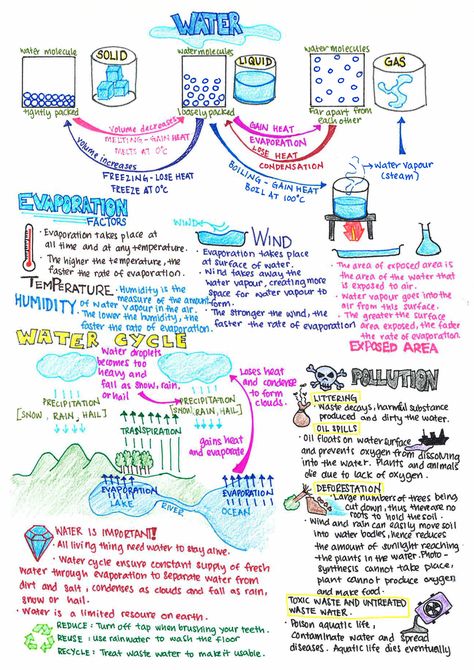 WATER
water molecule
SOLID
water molecules
LIQUID
water molecules
GAS
tightly packed
loosely packed
far apart from
each other
Volume decreases
MELTING - GAIN HEAT
MELTS AT 0°C
Volume increases
FREEZING - LOSE HEAT
FREEZE AT 0°C
GAIN HEAT
EVAPORATION
LOSE HEAT
CONDENSATION
BOILING - GAIN HEAT
BOIL AT 100°C
Water Vapour
(steam)
EVAPORATION
FACTORS
• Evaporation takes place at
all time and at any temperature.
• The higher the temperature, the
faster the rate of evaporation.
TEMPERATURE
WIND
WIND
• Evaporation takes place
at surface of water.
• Wind takes away the
water vapour, creating more
space for water vapour to
form.
• The stronger the wind, the
faster the rate of evaporation
• The area of exposed area is
the area of the water that
is exposed to air.
• Water vapour goes into the
air from this surface.
• The greater the surface
area exposed, the faster
the rate of evaporation.
EXPOSED AREA
HUMIDITY
• Humidity is the
measure of the amount
of water vapour in the air.
• The lower the humidity, the
faster the rate of evaporation.
WATER CYCLE
Water droplets
becomes too
heavy and
fall as snow, rain,
or hail
Loses heat
and condense
to form
clouds.
PRECIPITATION
[SNOW, RAIN, HAIL]
PRECIPITATION
[SNOW, RAIN, HAIL]
TRANSPIRATION
gains heat
and evaporate
EVAPORATION
LAKE
RIVER
EVAPORATION
OCEAN
POLLUTION
LITTERING
• Waste decays, harmful substance
produced and dirty the water.
OIL SPILLS
• Oil floats on water surface
and prevents oxygen from dissolving
into the water. Plants and animals
die due to lack of oxygen.
DEFORESTATION
• Large numbers of trees being
cut down, thus there are no
roots to hold the soil.
• Wind and rain can easily move soil
into water bodies, hence reduces
the amount of sunlight reaching
the plants in the water. Photo-
synthesis cannot take place,
plant cannot produce oxygen
and make food.
TOXIC WASTE AND UNTREATED
WASTE WATER.
• Poison aquatic life,
contaminate water and spread
diseases. Aquatic life dies eventually
WATER IS IMPORTANT!
• All living thing need water to stay alive.
• Water cycle ensure constant supply of fresh
water through evaporation to separate water from
dirt and salt, condenses as clouds and fall as rain,
snow or hail.
• Water is a limited resource on earth.
REDUCE: Turn off tap when brushing your teeth.
REUSE: use rainwater to wash the floor
RECYCLE: Treat waste water to make it usable.